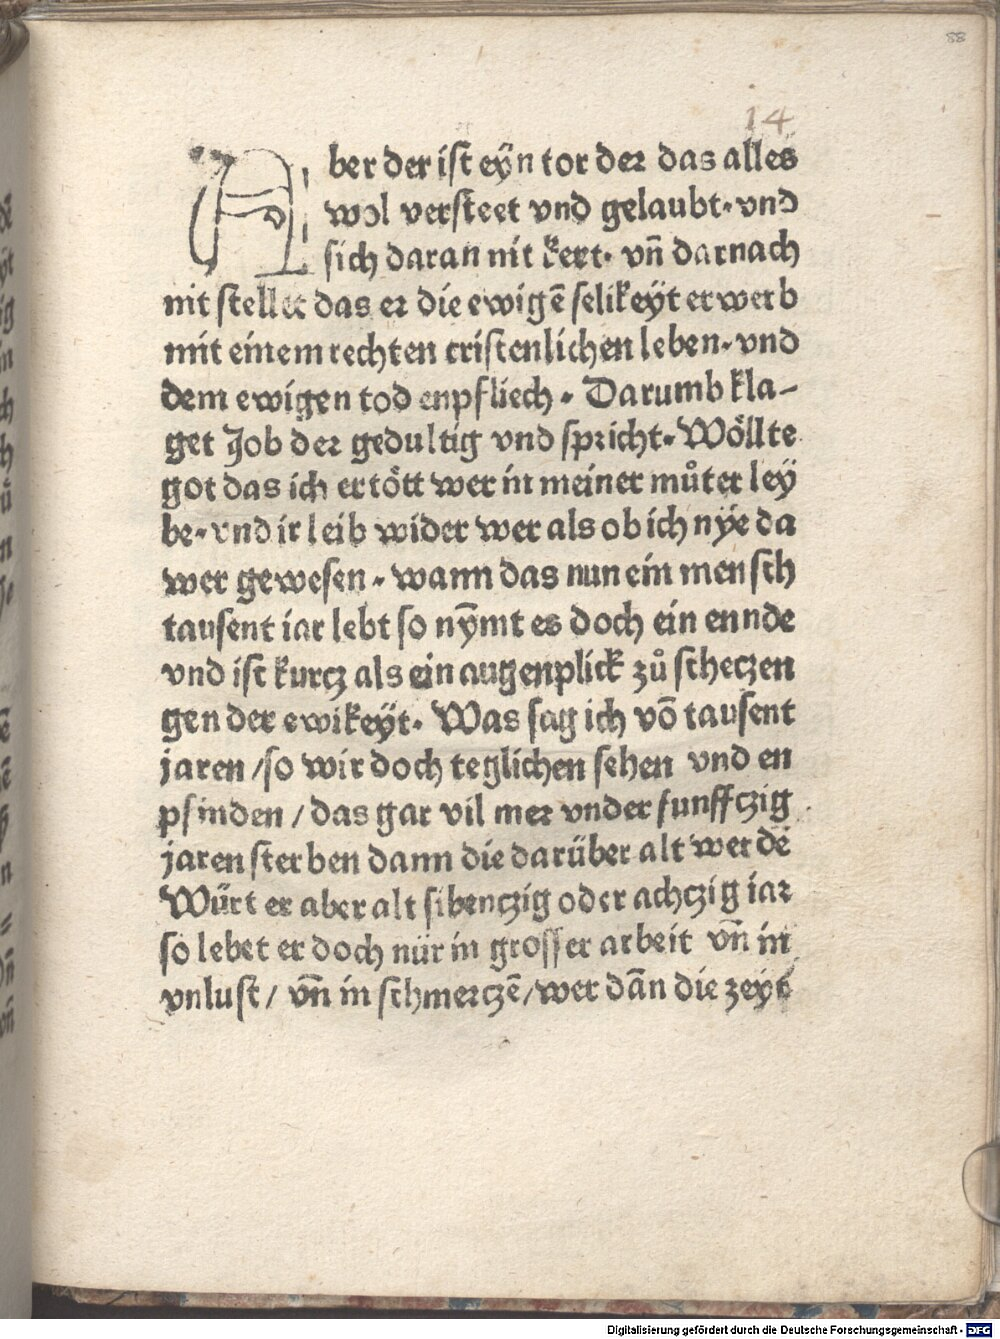 88
14
Aber der ist eÿn tor der das alles
wol versteet vnd gelaubt· vnd
sich daran nit kert· vn̄ darnach
nit stellet das er die ewigē selikeÿt erwerb
mit einem rechten cristenlichen leben· vnd
dem ewigen tod enpfliech · Darumb kla-
get Job der gedultig vnd spricht· Wöllte
got das ich ertött wer in meiner můter leÿ
be· vnd ir leib wider wer als ob ich nÿe da
wer gewesen · wann das nun ein mensch
tausent iar lebt so nȳmt es doch ein ennde
vnd ist kurcz als ein augenplick zů scheczen
gen der ewikeÿt· Was sag ich vō tausent
jaren /so wir doch teglichen sehen vnd en
pfinden / das gar vil mer vnder funffczig
jaren sterben dann die darüber alt werdē
Würt er aber alt sibenczig oder achczig iar
so lebet er doch nür in grosser arbeit vn̄ in
vnlust / vn̄ in schmerczē /wer dān die zeyt
Digitalisierung gefördert durch die Deutsche Forschungsgemeinschaft - DFG